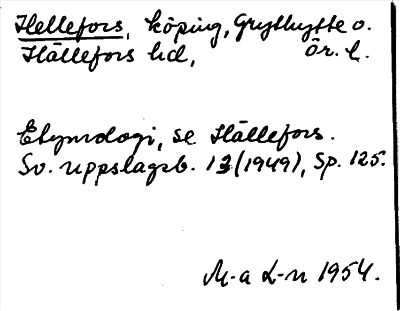 Hellefors, köping, Grythytte o.
Hällefors hd, Ör. l.
Etymologi, se Hällefors.
Sv. uppslagsb. 13 (1949), sp. 125.
M-a L-n 1954.